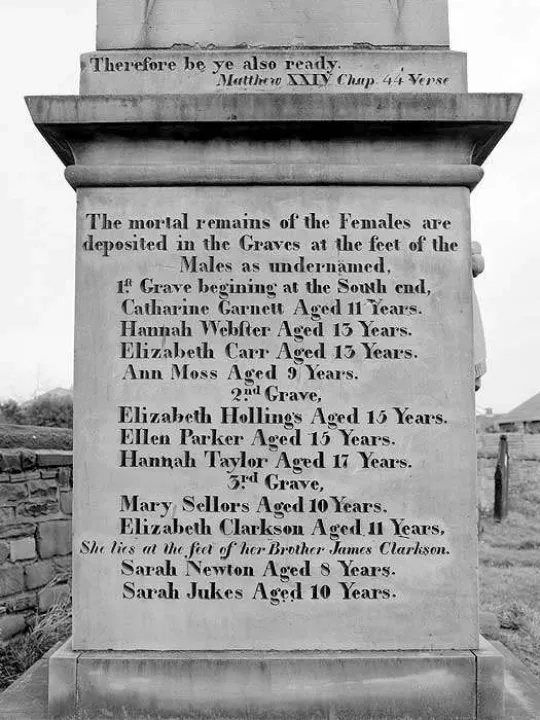 Therefore be ye also ready.
Matthew XXIV Chap. 44 Verse
The mortal remains of the Females are
deposited in the Graves at the feet of the
Males as undernamed,
1st Grave begining at the South end,
Catharine Garnett Aged 11 Years.
Hannah Webſter Aged 13 Years.
Elizabeth Carr Aged 13 Years.
Ann Moss Aged 9 Years.
2nd Grave,
Elizabeth Hollings Aged 15 Years.
Ellen Parker Aged 15 Years.
Hannah Taylor Aged 17 Years.
3rd Grave,
Mary Sellors Aged 10 Years.
Elizabeth Clarkson Aged 11 Years,
She lies at the feet of her Brother James Clarkson.
Sarah Newton Aged 8 Years.
Sarah Jukes Aged 10 Years.